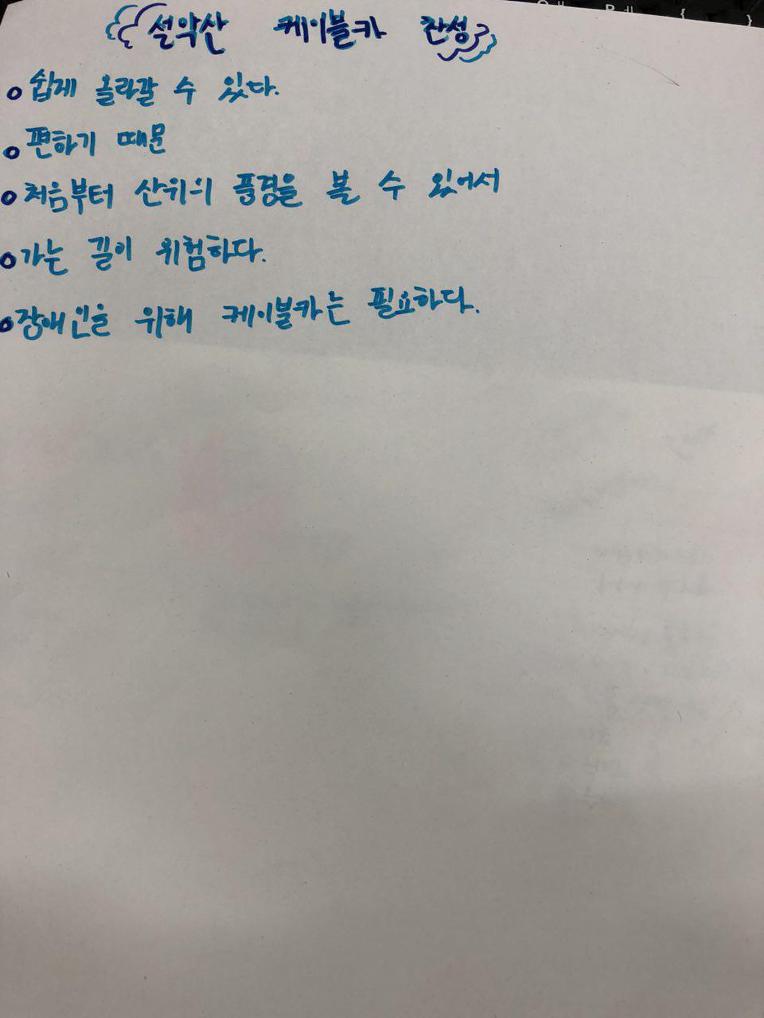 설악산 케이블카 찬성
쉽게 올라갈 수 있다.
편하기 때문
처음부터 산위의 풍경을 볼 수 있어서
가는 길이 위험하다.
장애인을 위해 케이블카는 필요하다.